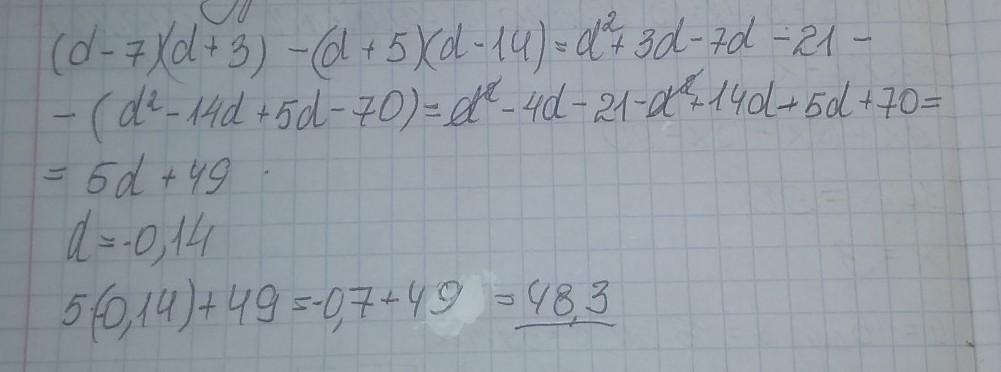 (d-7)(d+3) -(d+5)(d-14)=d²+3d-7d-21-
-(d²-14d+5d-70)=d²-4d-21-d²+14d-5d+70=
= 5d+49
d=-0,14
5(-0,14)+49=-0,7+49 =48,3